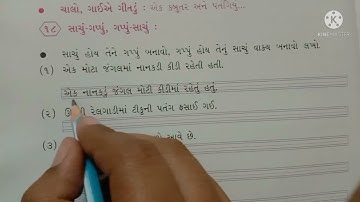 ચાલો, ગાઈએ ગીતડું : એક કબૂતર અને પતંગિયું...
૧૮ સાચું-ગપ્પું, ગપ્પું-સાચું :
સાચું હોય તેને ગપ્પું બનાવો, ગપ્પું હોય તેનું સાચું વાક્ય બનાવી લખો.
(૧) એક મોટા જંગલમાં નાનકડી કીડી રહેતી હતી.
એક નાનકડું જંગલ મોટી કીડીમાં રહેતું હતું.
(૨) રેલગાડીમાં ટીકુની પતંગ ફસાઈ ગઈ.
(૩) આવે છે.
KINEMASTER